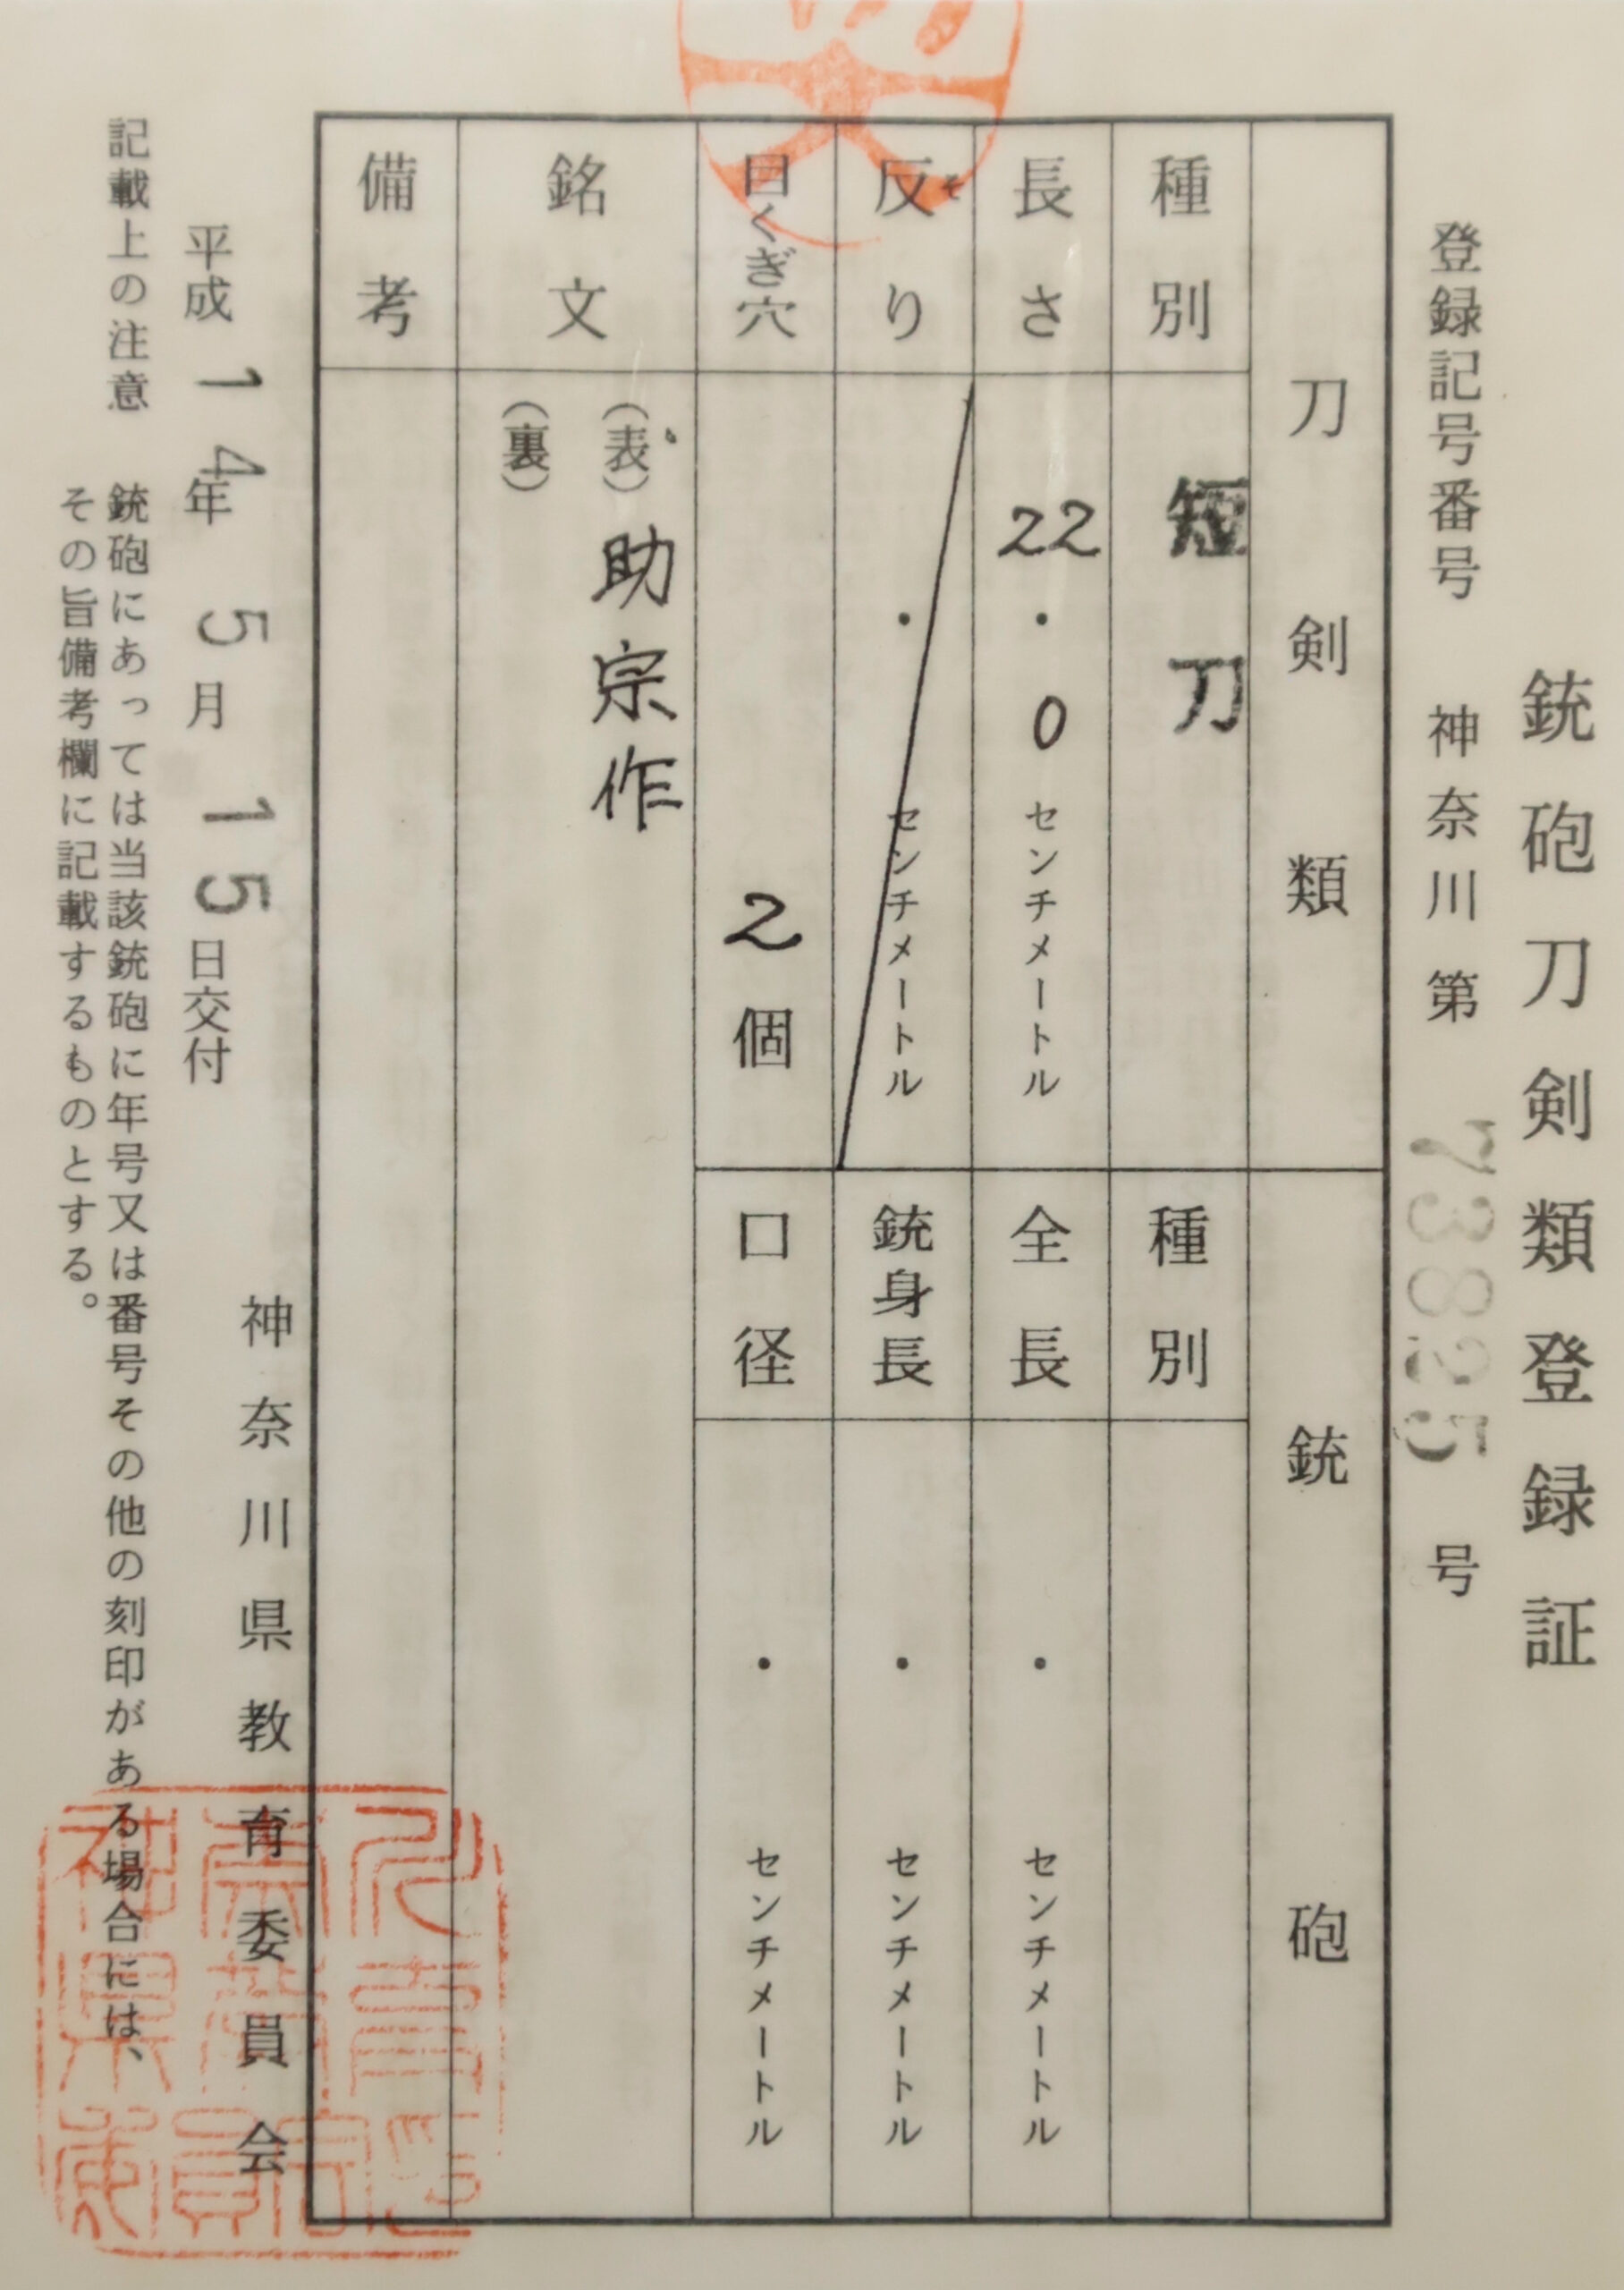 銃砲刀剣類登録証
登録記号番号 神奈川第 73825 号
刀剣類
種別 短刀
長さ 22.0 センチメートル
反り そ . センチメートル
目くぎ穴 2個
銃砲
種別
全長 . センチメートル
銃身長 . センチメートル
口径 . センチメートル
銘文 (表) 助宗作
(裏)
備考
神奈川県教育委員会
平成 14年 5月 15日交付
記載上の注意 銃砲にあっては当該銃砲に年号又は番号その他の刻印がある場合には、
その旨備考欄に記載するものとする。